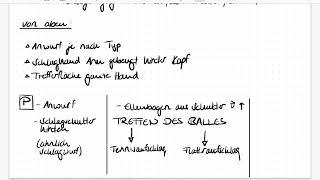 von oben:
△ Anwurf je nach Typ
△ Schlaghand Arm gebeugt hinter Kopf
△ Trefferfläche ganze Hand
P - Anwurf
- Schlagschulter hinten
(ähnlich Schlagwurf)
- Ellenbogen aus Schulter ↑
TREFFEN DES BALLES
Tennisaufschlag
Flatteraufschlag